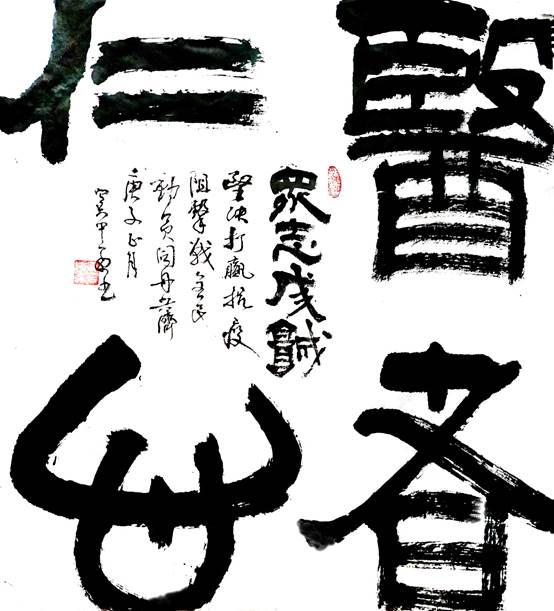 醫者
仁心
眾志成城
堅決打贏抗疫
阻擊戰全民
動員同舟共濟
庚子正月